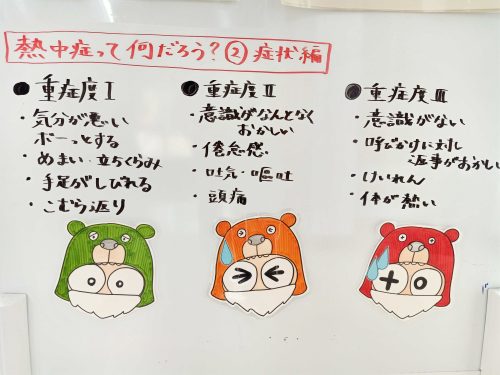 熱中症って何だろう?②症状編
●重症度Ⅰ
・気分が悪い
ボーっとする
・めまい・立ちくらみ
・手足がしびれる
・こむら返り
●重症度Ⅱ
・意識がなんとなく
おかしい
・倦怠感
・吐気・嘔吐
・頭痛
●重症度Ⅲ
・意識がない
・呼びかけに対し
返事がおかしい
・けいれん
・体が熱い